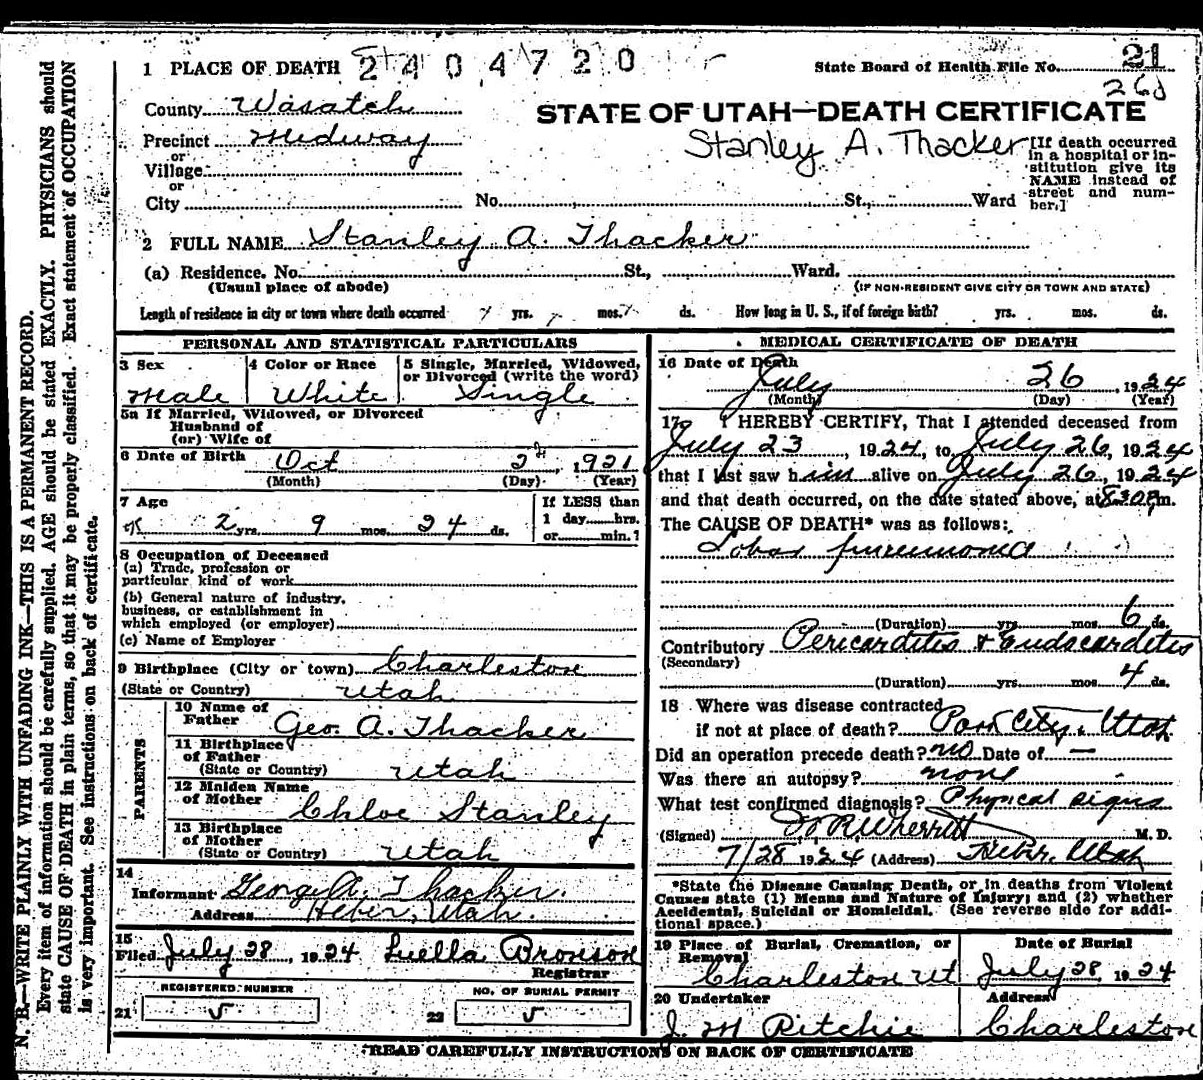 1 PLACE OF DEATH 2404720
State Board of Health File No. 21
26J
County Wasatch
STATE OF UTAH—DEATH CERTIFICATE
Precinct Midway
Stanley A. Thacker
[If death occurred in a hospital or institution give its NAME instead of street and number.]
or
Village
or
City No. St., Ward
2 FULL NAME Stanley A. Thacker
(a) Residence. No. St., Ward.
(Usual place of abode)
(IF NON-RESIDENT GIVE CITY OR TOWN AND STATE)
Length of residence in city or town where death occurred yrs. mos. ds. How long in U. S., if of foreign birth? yrs. mos. ds.
PERSONAL AND STATISTICAL PARTICULARS
3 Sex
Male
4 Color or Race
White
5 Single, Married, Widowed,
or Divorced (write the word)
Single
5a If Married, Widowed, or Divorced
Husband of
(or) Wife of
6 Date of Birth Oct 2d, 1921
(Month) (Day) (Year)
7 Age
2 yrs. 9 mos. 24 ds.
If LESS than
1 day hrs.
or min.?
8 Occupation of Deceased
(a) Trade, profession or
particular kind of work
(b) General nature of industry,
business, or establishment in
which employed (or employer)
(c) Name of Employer
9 Birthplace (City or town) Charleston
(State or Country) Utah
PARENTS
10 Name of
Father Geo. A. Thacker
11 Birthplace
of Father
(State or Country) Utah
12 Maiden Name
of Mother Chloe Stanley
13 Birthplace
of Mother
(State or Country) Utah
14
Informant George A. Thacker.
Address Heber, Utah.
15
Filed July 28, 1924 Luella Bronson
Registrar
REGISTERED NUMBER
21 5
NO. OF BURIAL PERMIT
22 5
MEDICAL CERTIFICATE OF DEATH
16 Date of Death
July 26, 1924
(Month) (Day) (Year)
17 I HEREBY CERTIFY, That I attended deceased from
July 23, 1924, to July 26, 1924
that I last saw him alive on July 26, 1924
and that death occurred, on the date stated above, at 830 P m.
The CAUSE OF DEATH* was as follows:
Lobar pneumonia
(Duration) yrs. mos. 6 ds.
Contributory Pericarditis & Endocarditis
(Secondary)
(Duration) yrs. mos. 4 ds.
18 Where was disease contracted
if not at place of death? Park City, Utah
Did an operation precede death? no Date of —
Was there an autopsy? none
What test confirmed diagnosis? Physical signs
(Signed) Wherritt M. D.
7/28 1924 (Address) Heber, Utah
*State the Disease Causing Death, or in deaths from Violent
Causes state (1) Means and Nature of Injury; and (2) whether
Accidental, Suicidal or Homicidal. (See reverse side for addi-
tional space.)
19 Place of Burial, Cremation, or
Removal
Charleston Ut
Date of Burial
July 28 1924
20 Undertaker
J. M Ritchie
Address
Charleston
READ CAREFULLY INSTRUCTIONS ON BACK OF CERTIFICATE
N. B.—WRITE PLAINLY WITH UNFADING INK—THIS IS A PERMANENT RECORD.
Every item of information should be carefully supplied. AGE should be stated EXACTLY. PHYSICIANS should
state CAUSE OF DEATH in plain terms, so that it may be properly classified. Exact statement of OCCUPATION
is very important. See instructions on back of certificate.